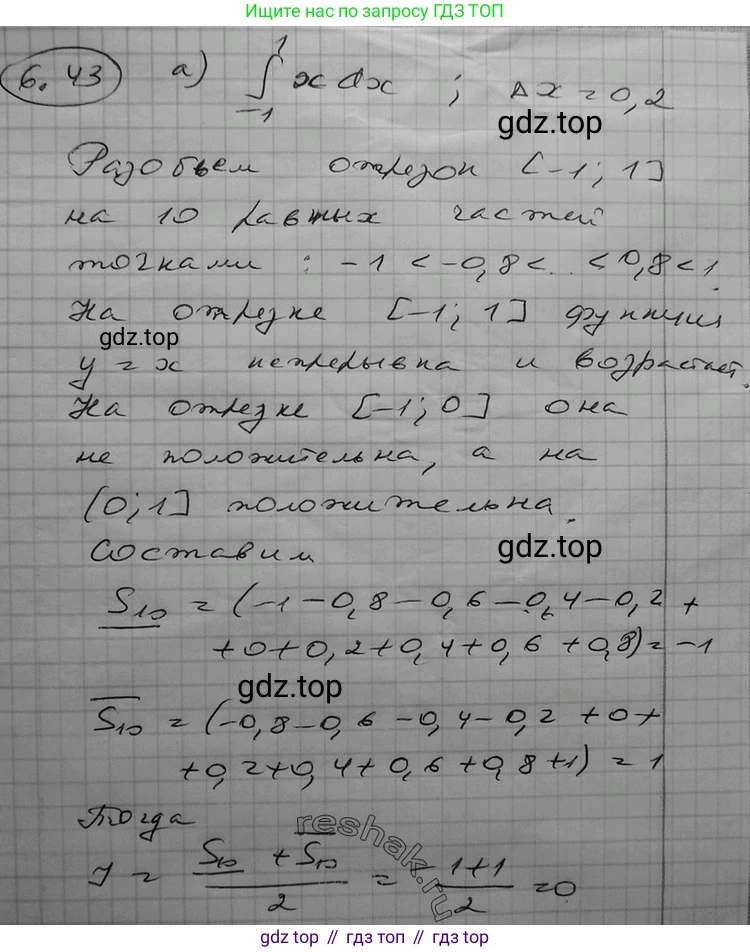 Ищите нас по запросу ГДЗ ТОП
6.43 а) ∫₋₁¹ x dx ; Δx = 0,2
gdz.top
Разобьем отрезок [-1; 1]
на 10 равных частей
точками : -1 < -0,8 < .. < 0,8 < 1.
На отрезке [-1; 1] функция
gdz.top
y = x непрерывна и возрастает.
На отрезке [-1; 0] она
не положительна, а на
[0; 1] положительна.
Составим
gdz.top
S₁₀ = (-1-0,8-0,6-0,4-0,2+
+0+0,2+0,4+0,6+0,8) = -1
gdz.top
S₁₀ = (-0,8-0,6-0,4-0,2+0+
+0,2+0,4+0,6+0,8+1) = 1
Тогда
reshak.ru
J = (S₁₀ + S₁₀)/2 = (-1+1)/2 = 0
gdz.top // gdz.top // gdz.top // gdz.top